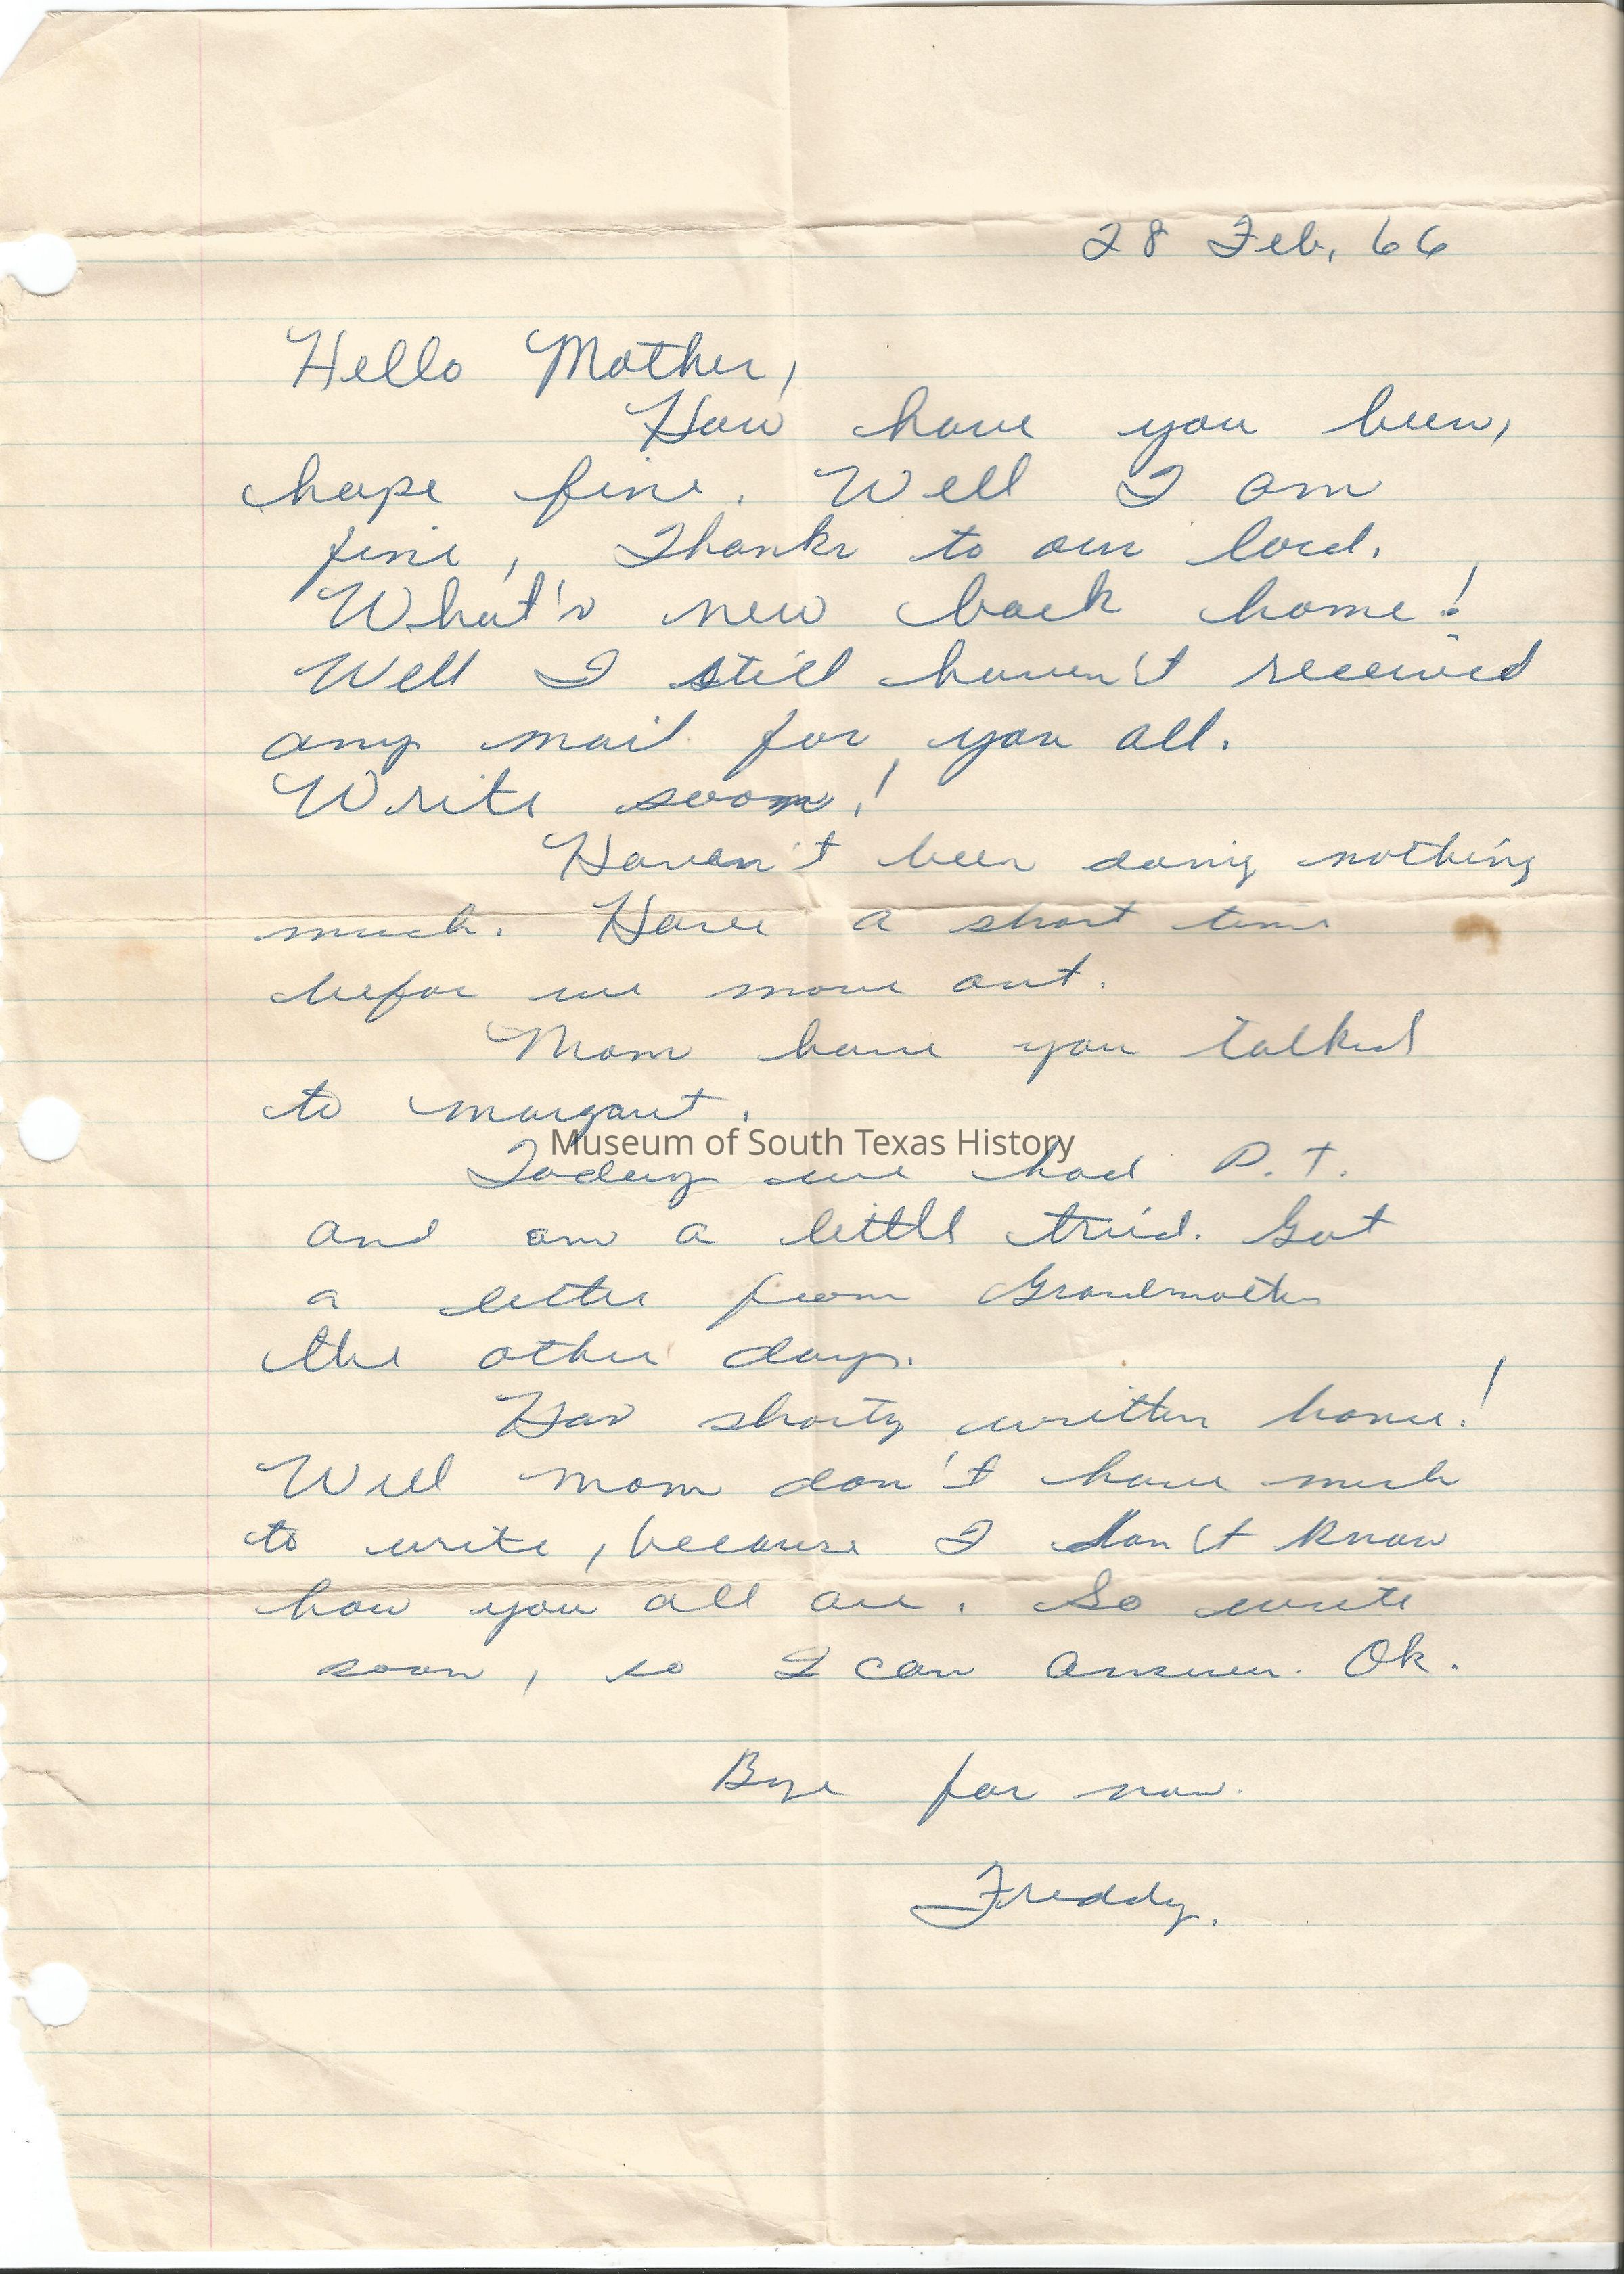 28 Feb, 66
Hello Mother,
How have you been,
hope fine. Well I am
fine, Thanks to our lord.
What's new back home!
Well I still haven't received
any mail for you all.
Write soon!
Haven't been doing nothing
much. Have a short time
befor we move out.
Mom have you talked
to margaret.
Museum of South Texas History
Today we had P.T.
and am a little tried. Got
a letter from Grandmother
the other day.
Has shorty written home!
Well mom don't have much
to write, because I don't know
how you all are. So write
soon, so I can answer. Ok.
Bye for now.
Freddy.